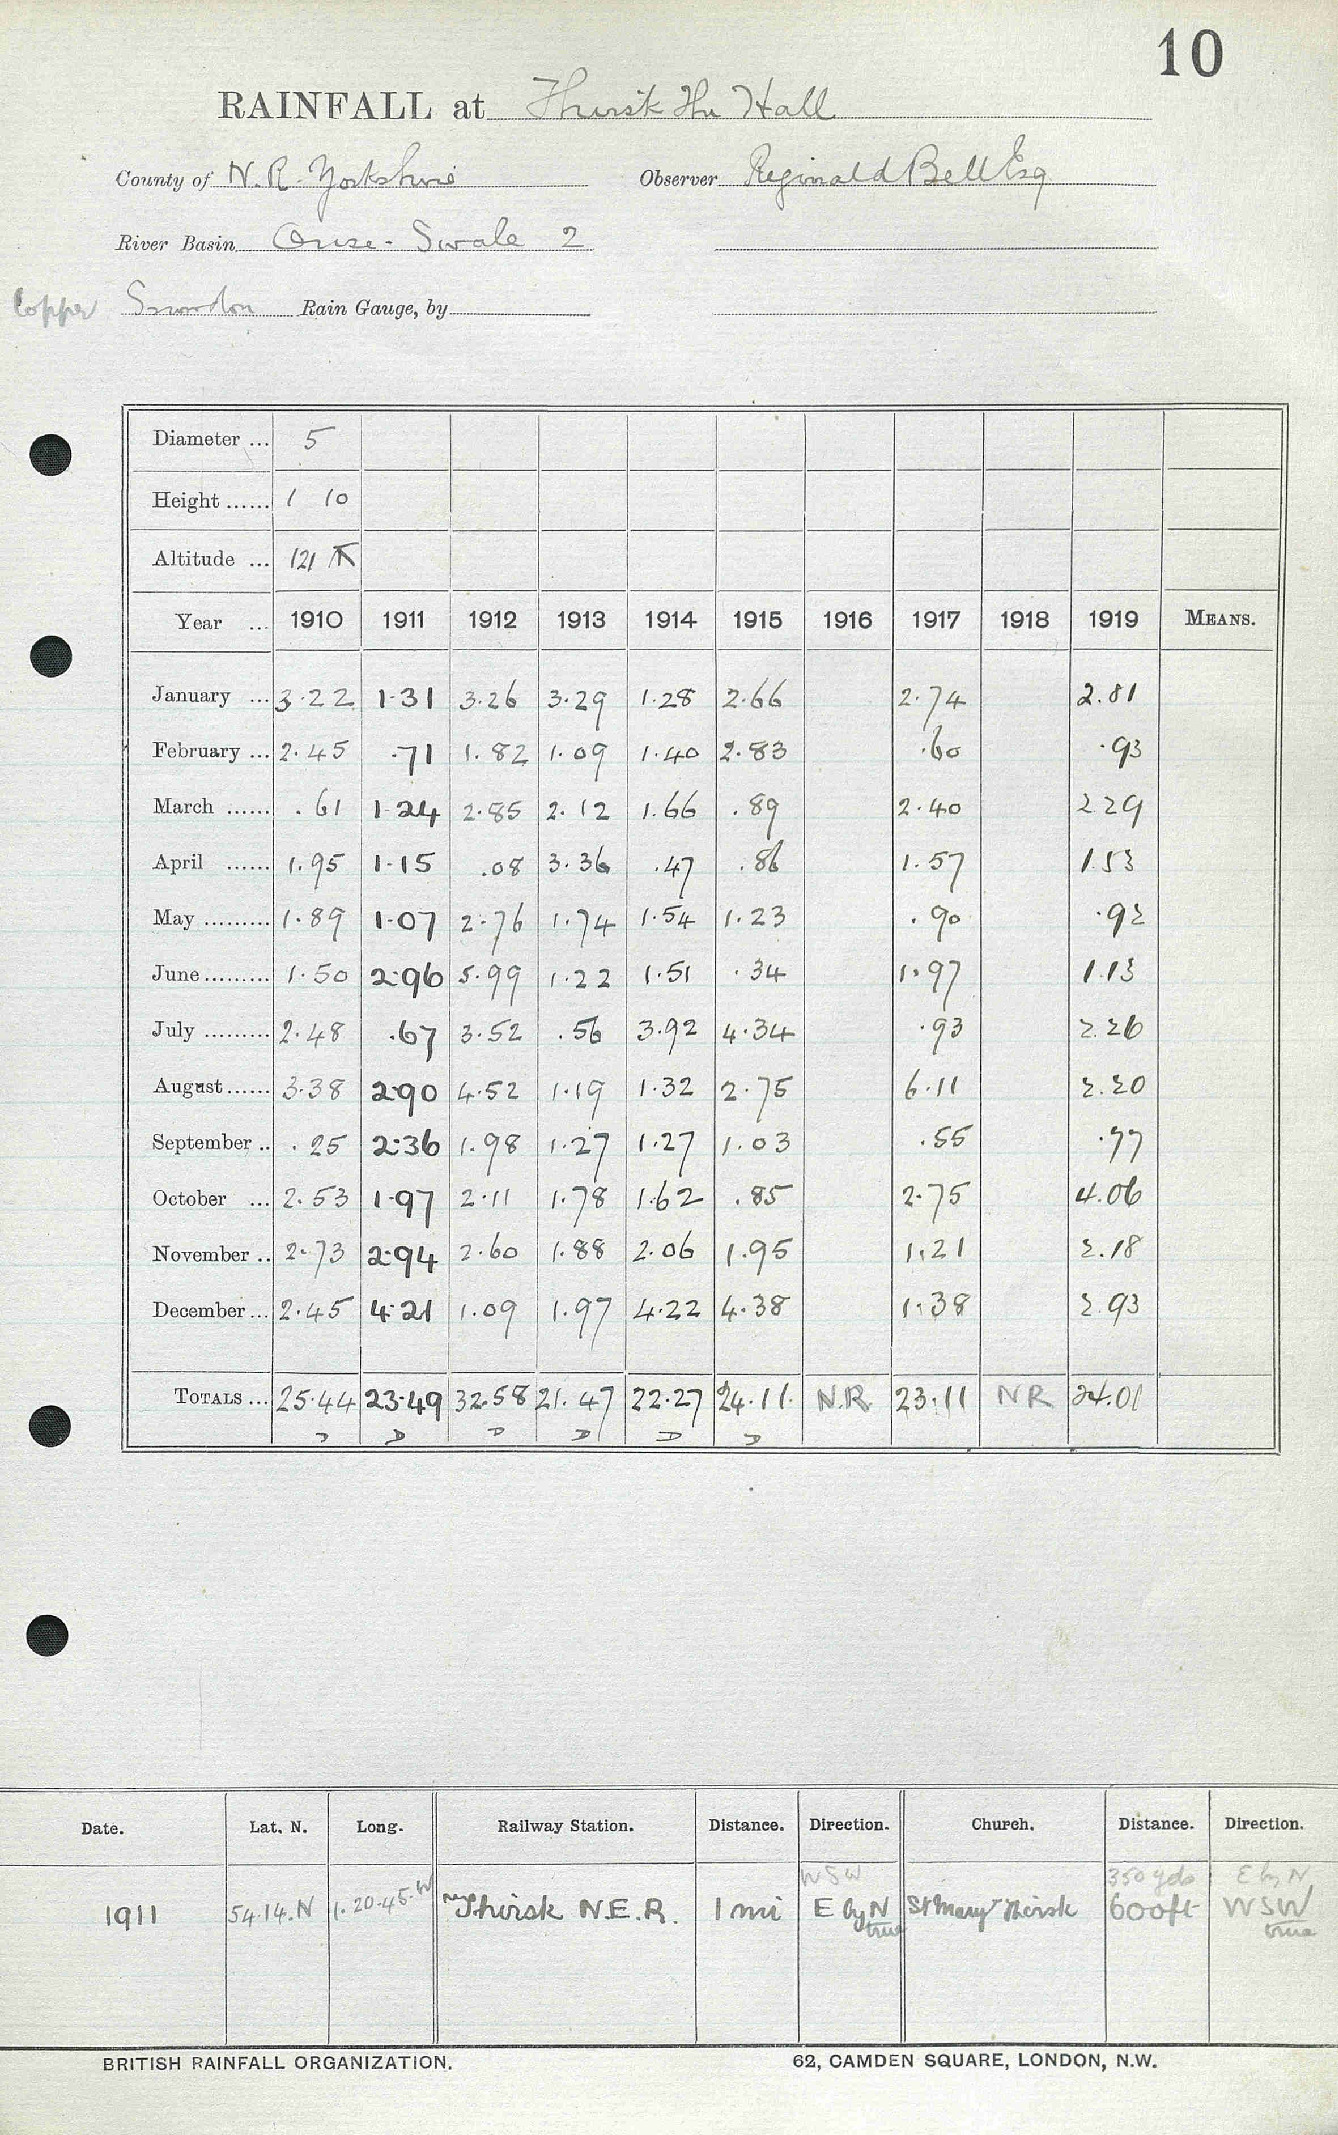 10
RAINFALL at Thirsk The Hall
County of N. R. Yorkshire Observer Reginald Bell Esq
River Basin Ouse - Swale 2
Copper Snowdon Rain Gauge, by
Diameter ... 5
Height ...... 1 10
Altitude ... 121
Year ... 1910 1911 1912 1913 1914 1915 1916 1917 1918 1919 MEANS.
January ... 3.22 1.31 3.26 3.29 1.28 2.66 2.74 2.81
February ... 2.45 .71 1.82 1.09 1.40 2.83 .60 .93
March ...... .61 1.24 2.85 2.12 1.66 .89 2.40 2.29
April ...... 1.95 1.15 .08 3.36 .47 .86 1.57 1.53
May ......... 1.89 1.07 2.76 1.74 1.54 1.23 .90 .92
June ......... 1.50 2.96 5.99 1.22 1.51 .34 1.97 1.13
July ......... 2.48 .67 3.52 .56 3.92 4.34 .93 2.26
August ...... 3.38 2.90 4.52 1.19 1.32 2.75 6.11 2.20
September .. .25 2.36 1.98 1.27 1.27 1.03 .55 .77
October ... 2.53 1.97 2.11 1.78 1.62 .85 2.75 4.06
November .. 2.73 2.94 2.60 1.88 2.06 1.95 1.21 2.18
December ... 2.45 4.21 1.09 1.97 4.22 4.38 1.38 2.93
TOTALS ... 25.44 23.49 32.58 21.47 22.27 24.11 N.R. 23.11 NR 24.01
Date. Lat. N. Long. Railway Station. Distance. Direction. Church. Distance. Direction.
WSW 350 yds E by N
1911 54.14.N 1.20.45.W Thirsk N.E.R. 1 mi E by N St Mary Thirsk 600ft WSW
true true
BRITISH RAINFALL ORGANIZATION. 62, CAMDEN SQUARE, LONDON, N.W.